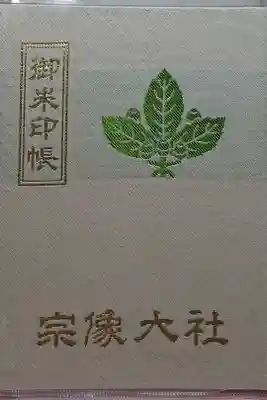 御朱印帳
宗像大社